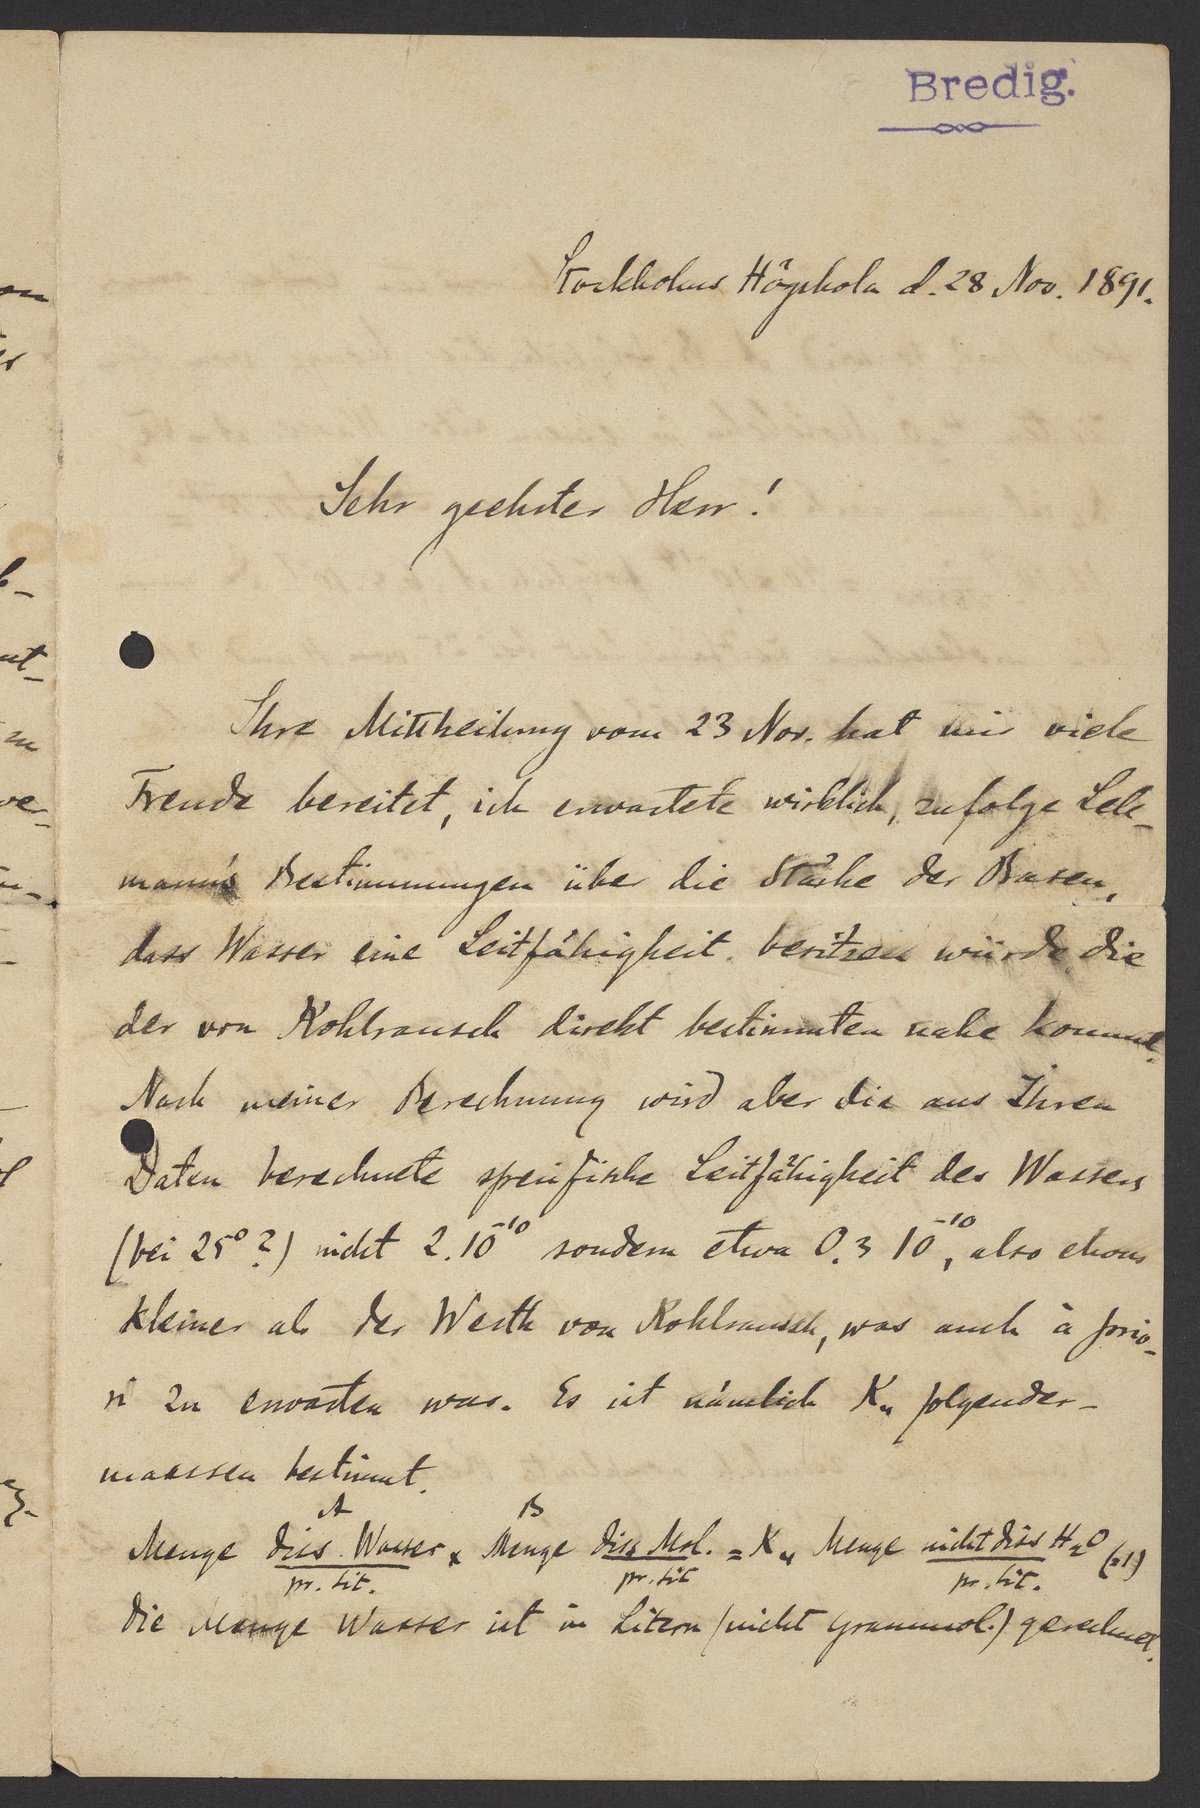 Bredig.
Stockholms Högskola d. 28 Nov. 1891.
Sehr geehrter Herr!
Ihre Mittheilung vom 23 Nov. hat mir viele
Freude bereitet, ich erwartete wirklich, zufolge Lell-
mann's Bestimmungen über die Stärke der Basen,
dass Wasser eine Leitfähigkeit besitzen würde, die
der von Kohlrausch direkt bestimmten nahe kommt.
Nach meiner Berechnung wird aber die aus Ihren
Daten berechnete speifische Leitfähigkeit des Wassers
(bei 25° ?) nicht 2.10⁻¹⁰ sondern etwa 0.3 10⁻¹⁰, also etwas
kleiner als der Werth von Kohlrausch, was auch à prio-
ri zu erwarten war. Es ist nämlich K₄ folgender-
maassen bestimmt.
A B
Menge diss. Wasser x Menge diss. Mol. = K₄ Menge nicht diss H₂O (=1)
pr. Lit. pr. Lit pr. Lit.
die Menge Wasser ist in Litern (nicht Grammol.) gerechnet.